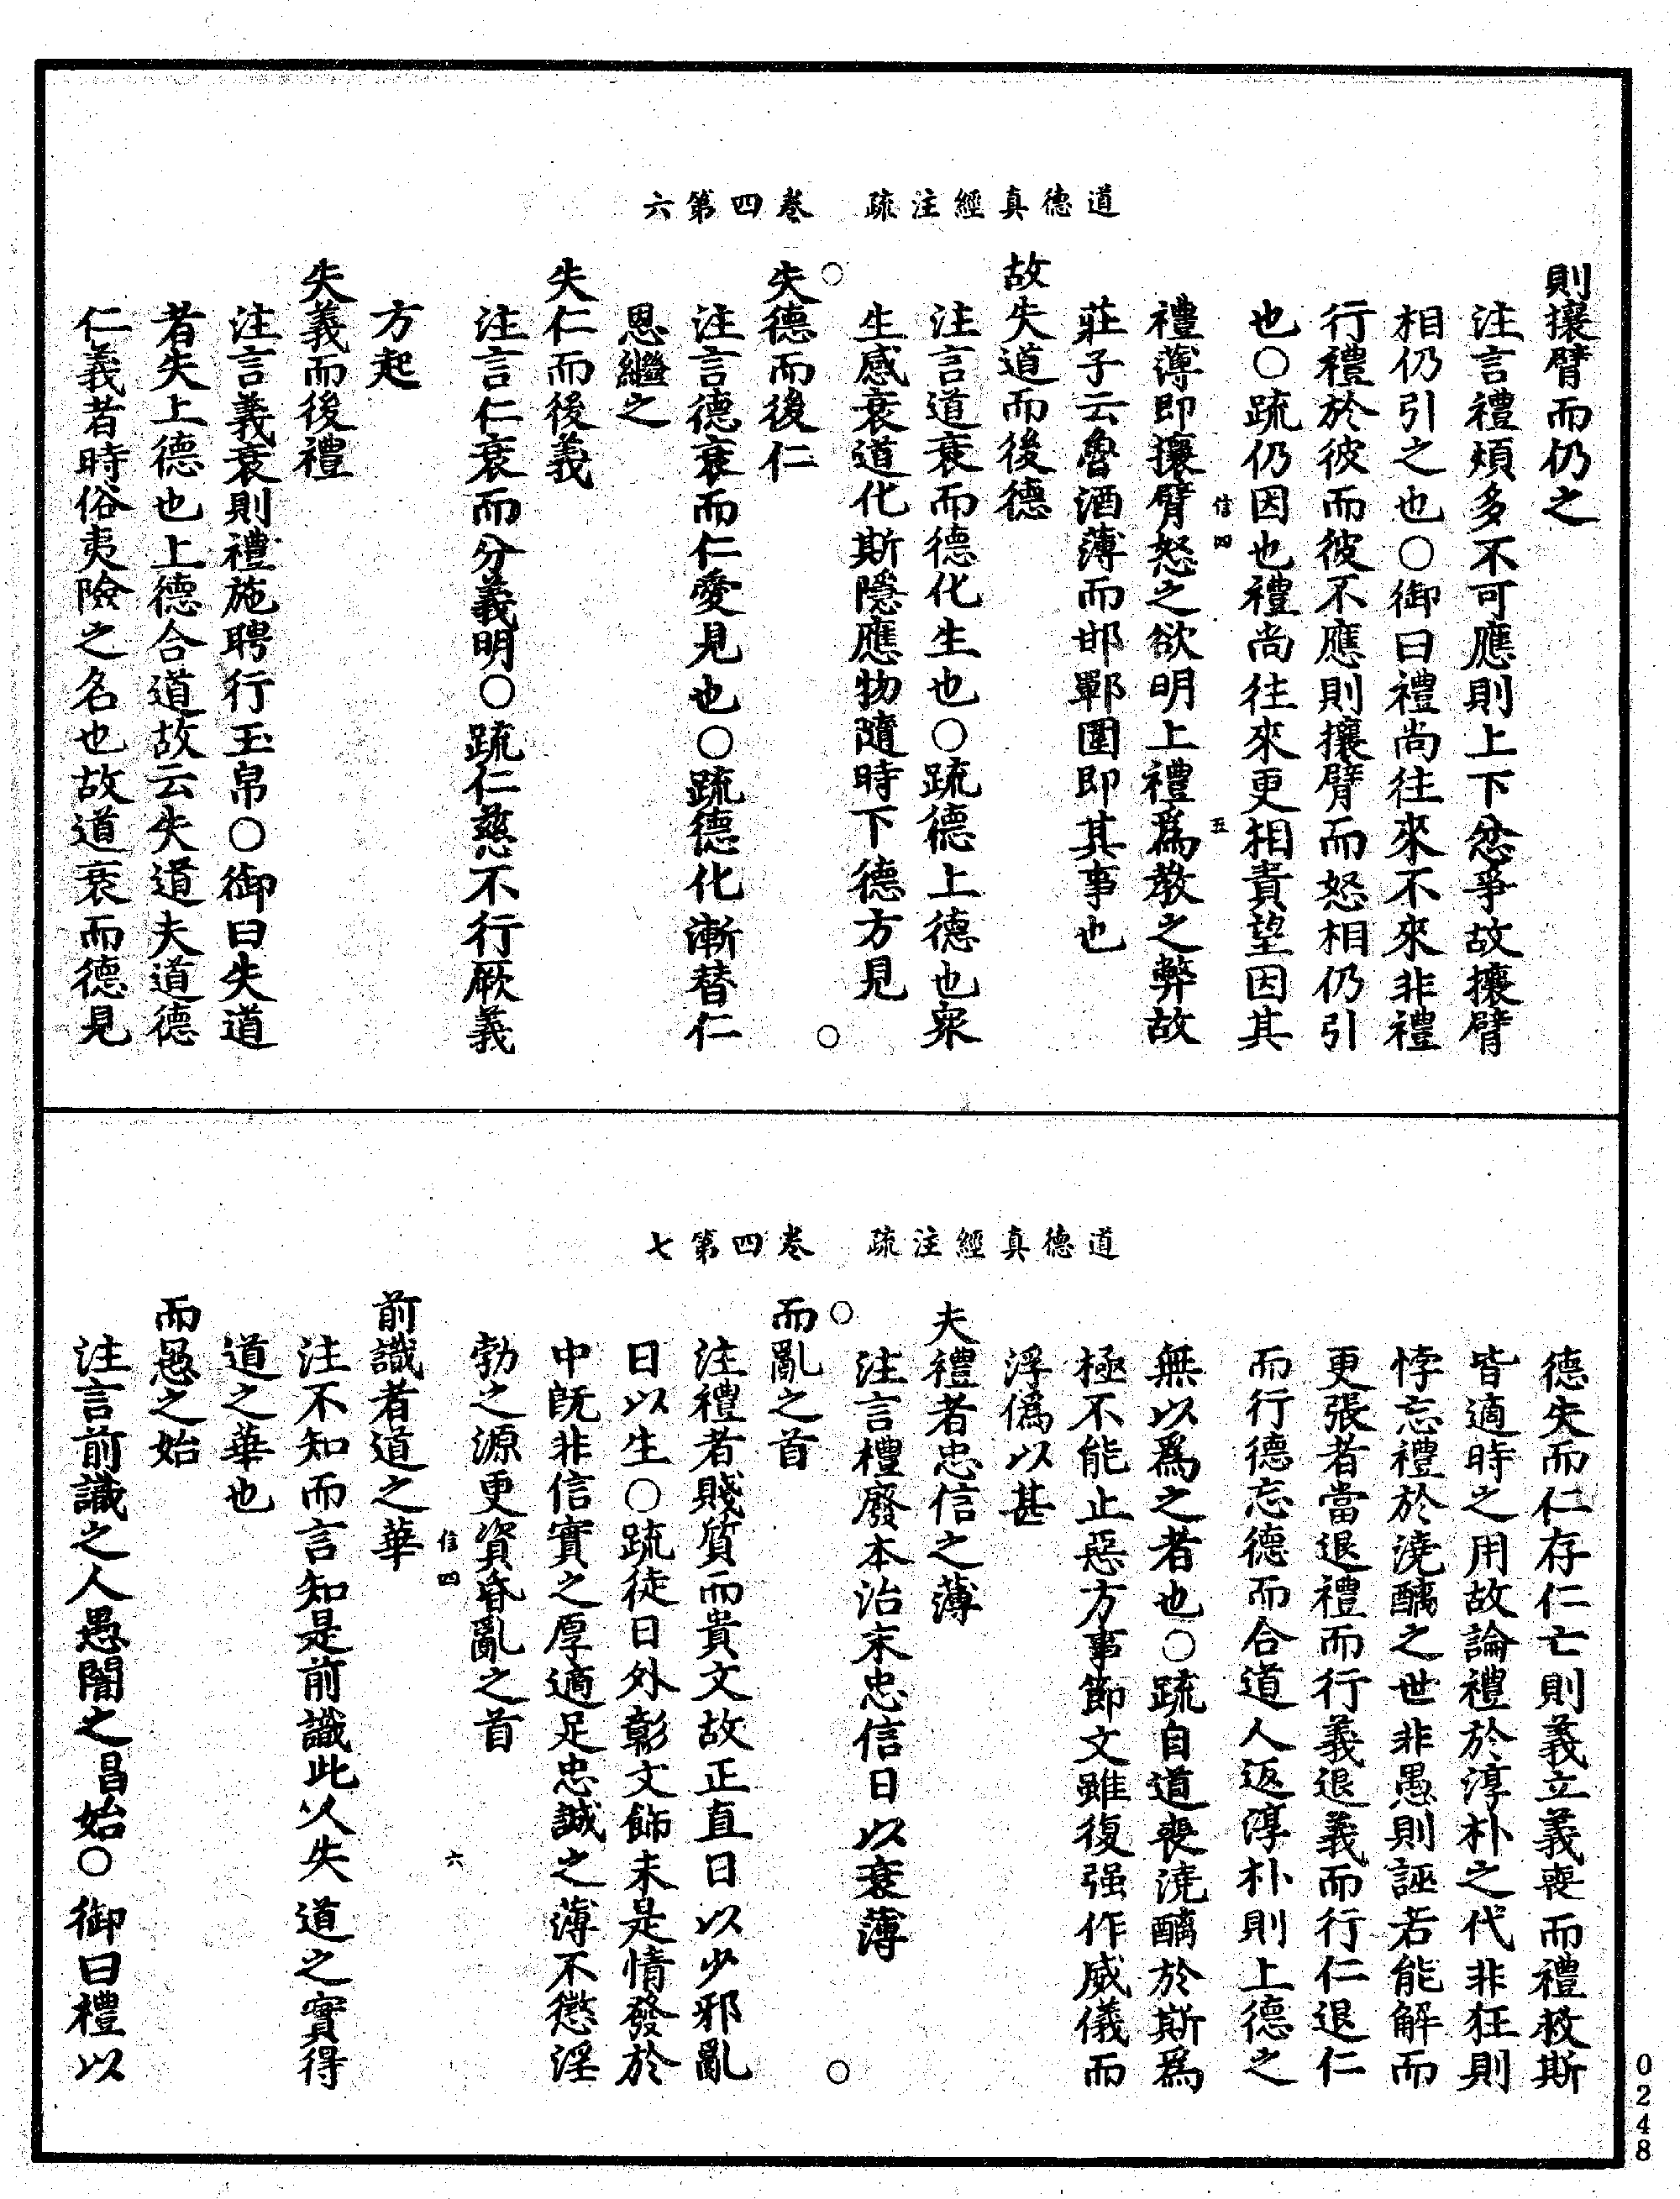 道德真經注疏　卷四第六
則攘臂而仍之
注言禮煩多不可應則上下忿爭故攘臂
相仍引之也○御曰禮尚往來不來非禮
行禮於彼而彼不應則攘臂而怒相仍引
也○疏仍因也禮尚往來更相責望因其
信四　五
禮薄即攘臂怒之欲明上禮爲教之弊故
莊子云魯酒薄而邯鄲圍即其事也
故失道而後德
注言道衰而德化生也○疏德上德也衆
生感衰道化斯隱應物隨時下德方見
○　○
失德而後仁
注言德衰而仁愛見也○疏德化漸替仁
恩繼之
失仁而後義
注言仁衰而分義明○疏仁慈不行厥義
方起
失義而後禮
注言義衰則禮施聘行玉帛○御曰失道
者失上德也上德合道故云失道夫道德
仁義者時俗夷險之名也故道衰而德見
道德真經注疏　卷四第七
德失而仁存仁亡則義立義喪而禮救斯
皆適時之用故論禮於淳朴之代非狂則
悖忘禮於澆醨之世非愚則誣若能解而
更張者當退禮而行義退義而行仁退仁
而行德忘德而合道人返淳朴則上德之
無以爲之者也○疏自道喪澆醨於斯爲
極不能止惡方事節文雖復强作威儀而
浮僞以甚
夫禮者忠信之薄
注言禮廢本治末忠信日以衰薄
○　○
而亂之首
注禮者賤質而貴文故正直日以少邪亂
日以生○疏徒日外彰文飾未是情發於
中旣非信實之厚適足忠誠之薄不懲淫
勃之源更資昏亂之首
信四　六
前識者道之華
注不知而言知是前識此人失道之實得
道之華也
而愚之始
注言前識之人愚闇之昌始○御曰禮以
0248